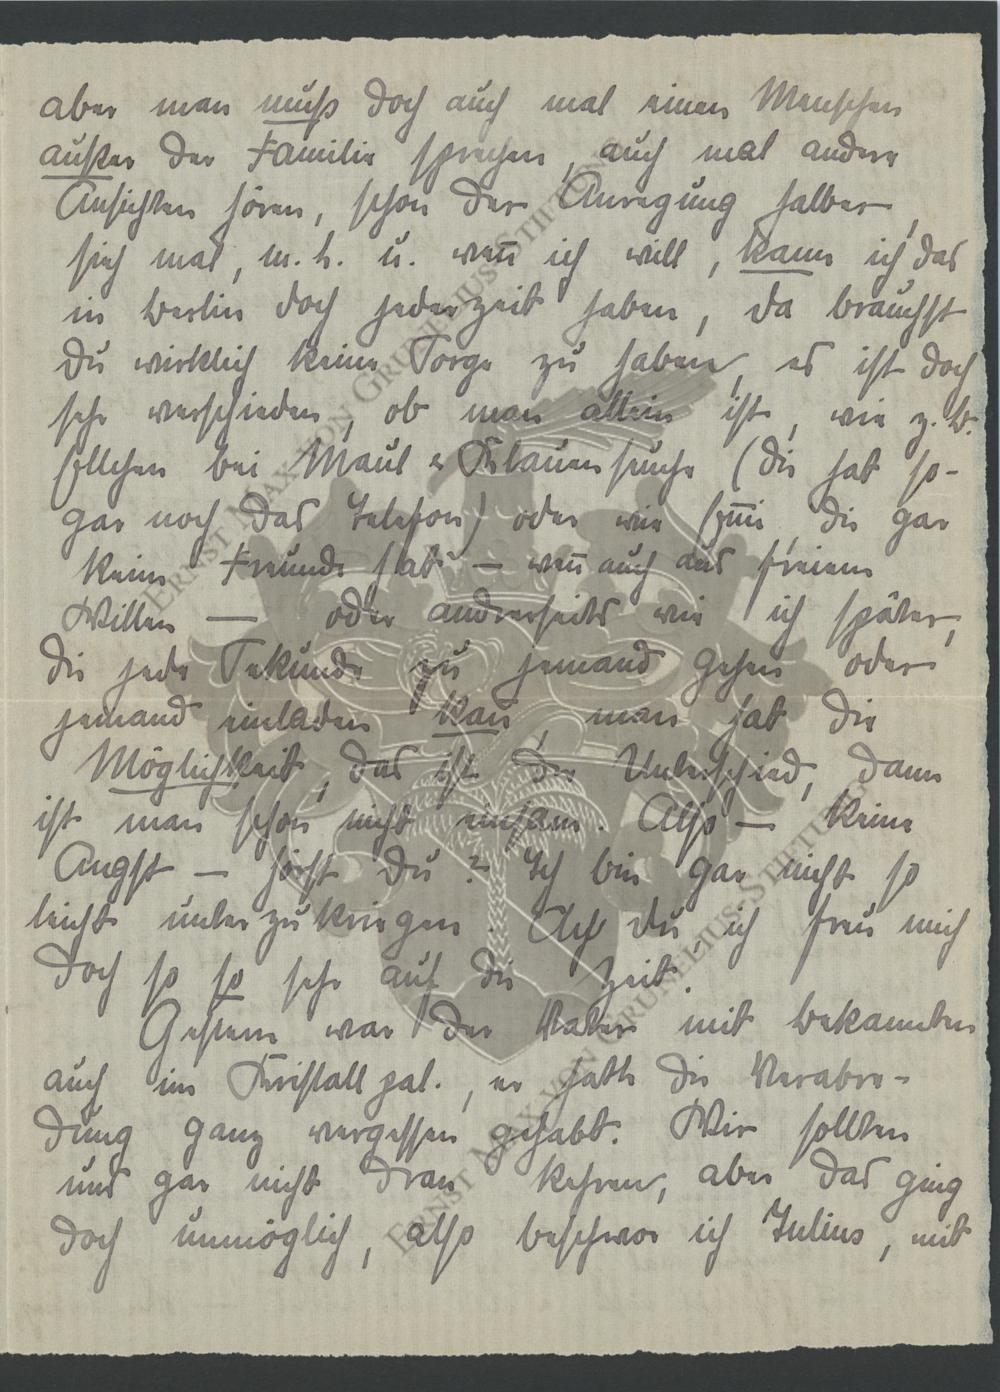 aber man muß doch auch mal einen Menschen
außer der Familie sprechen, auch mal andere
Ansichten hören, schon der Anregung halber,
sieh mal, m. h. u. weñ ich will, kann ich das
in Berlin doch jederzeit haben, da brauchst
Du wirklich keine Sorge zu haben, es ist doch
sehr verschieden, ob man allein ist, wie z. B.
bei Maul & Klauenseuche (die hat so-
gar noch das Telefon) oder wie die gar
keine Freunde hat – weñ auch aus freiem
Willen – oder andrerseits wie ich später,
die jede Sekunde zu jemand gehen oder
jemand einladen kañ, man hat die
Möglichkeit, das ist der Unterschied, dann
ist man schon nicht einsam. Also – keine
Angst – hörst Du? Ich bin gar nicht so
leicht unterzukriegen. Ach du, ich freu mich
doch so so sehr auf die Zeit.
Gestern war der Vater mit Bekannten
auch im Kristallpal., er hatte die Verabre-
dung ganz vergessen gehabt. Wir sollten
uns gar nicht dran kehren, aber das ging
doch unmöglich, also beschwor ich Julius, mit
ERNST MAX VON GRUNELIUS-STIFTUNG
ERNST MAX VON GRUNELIUS-STIFTUNG